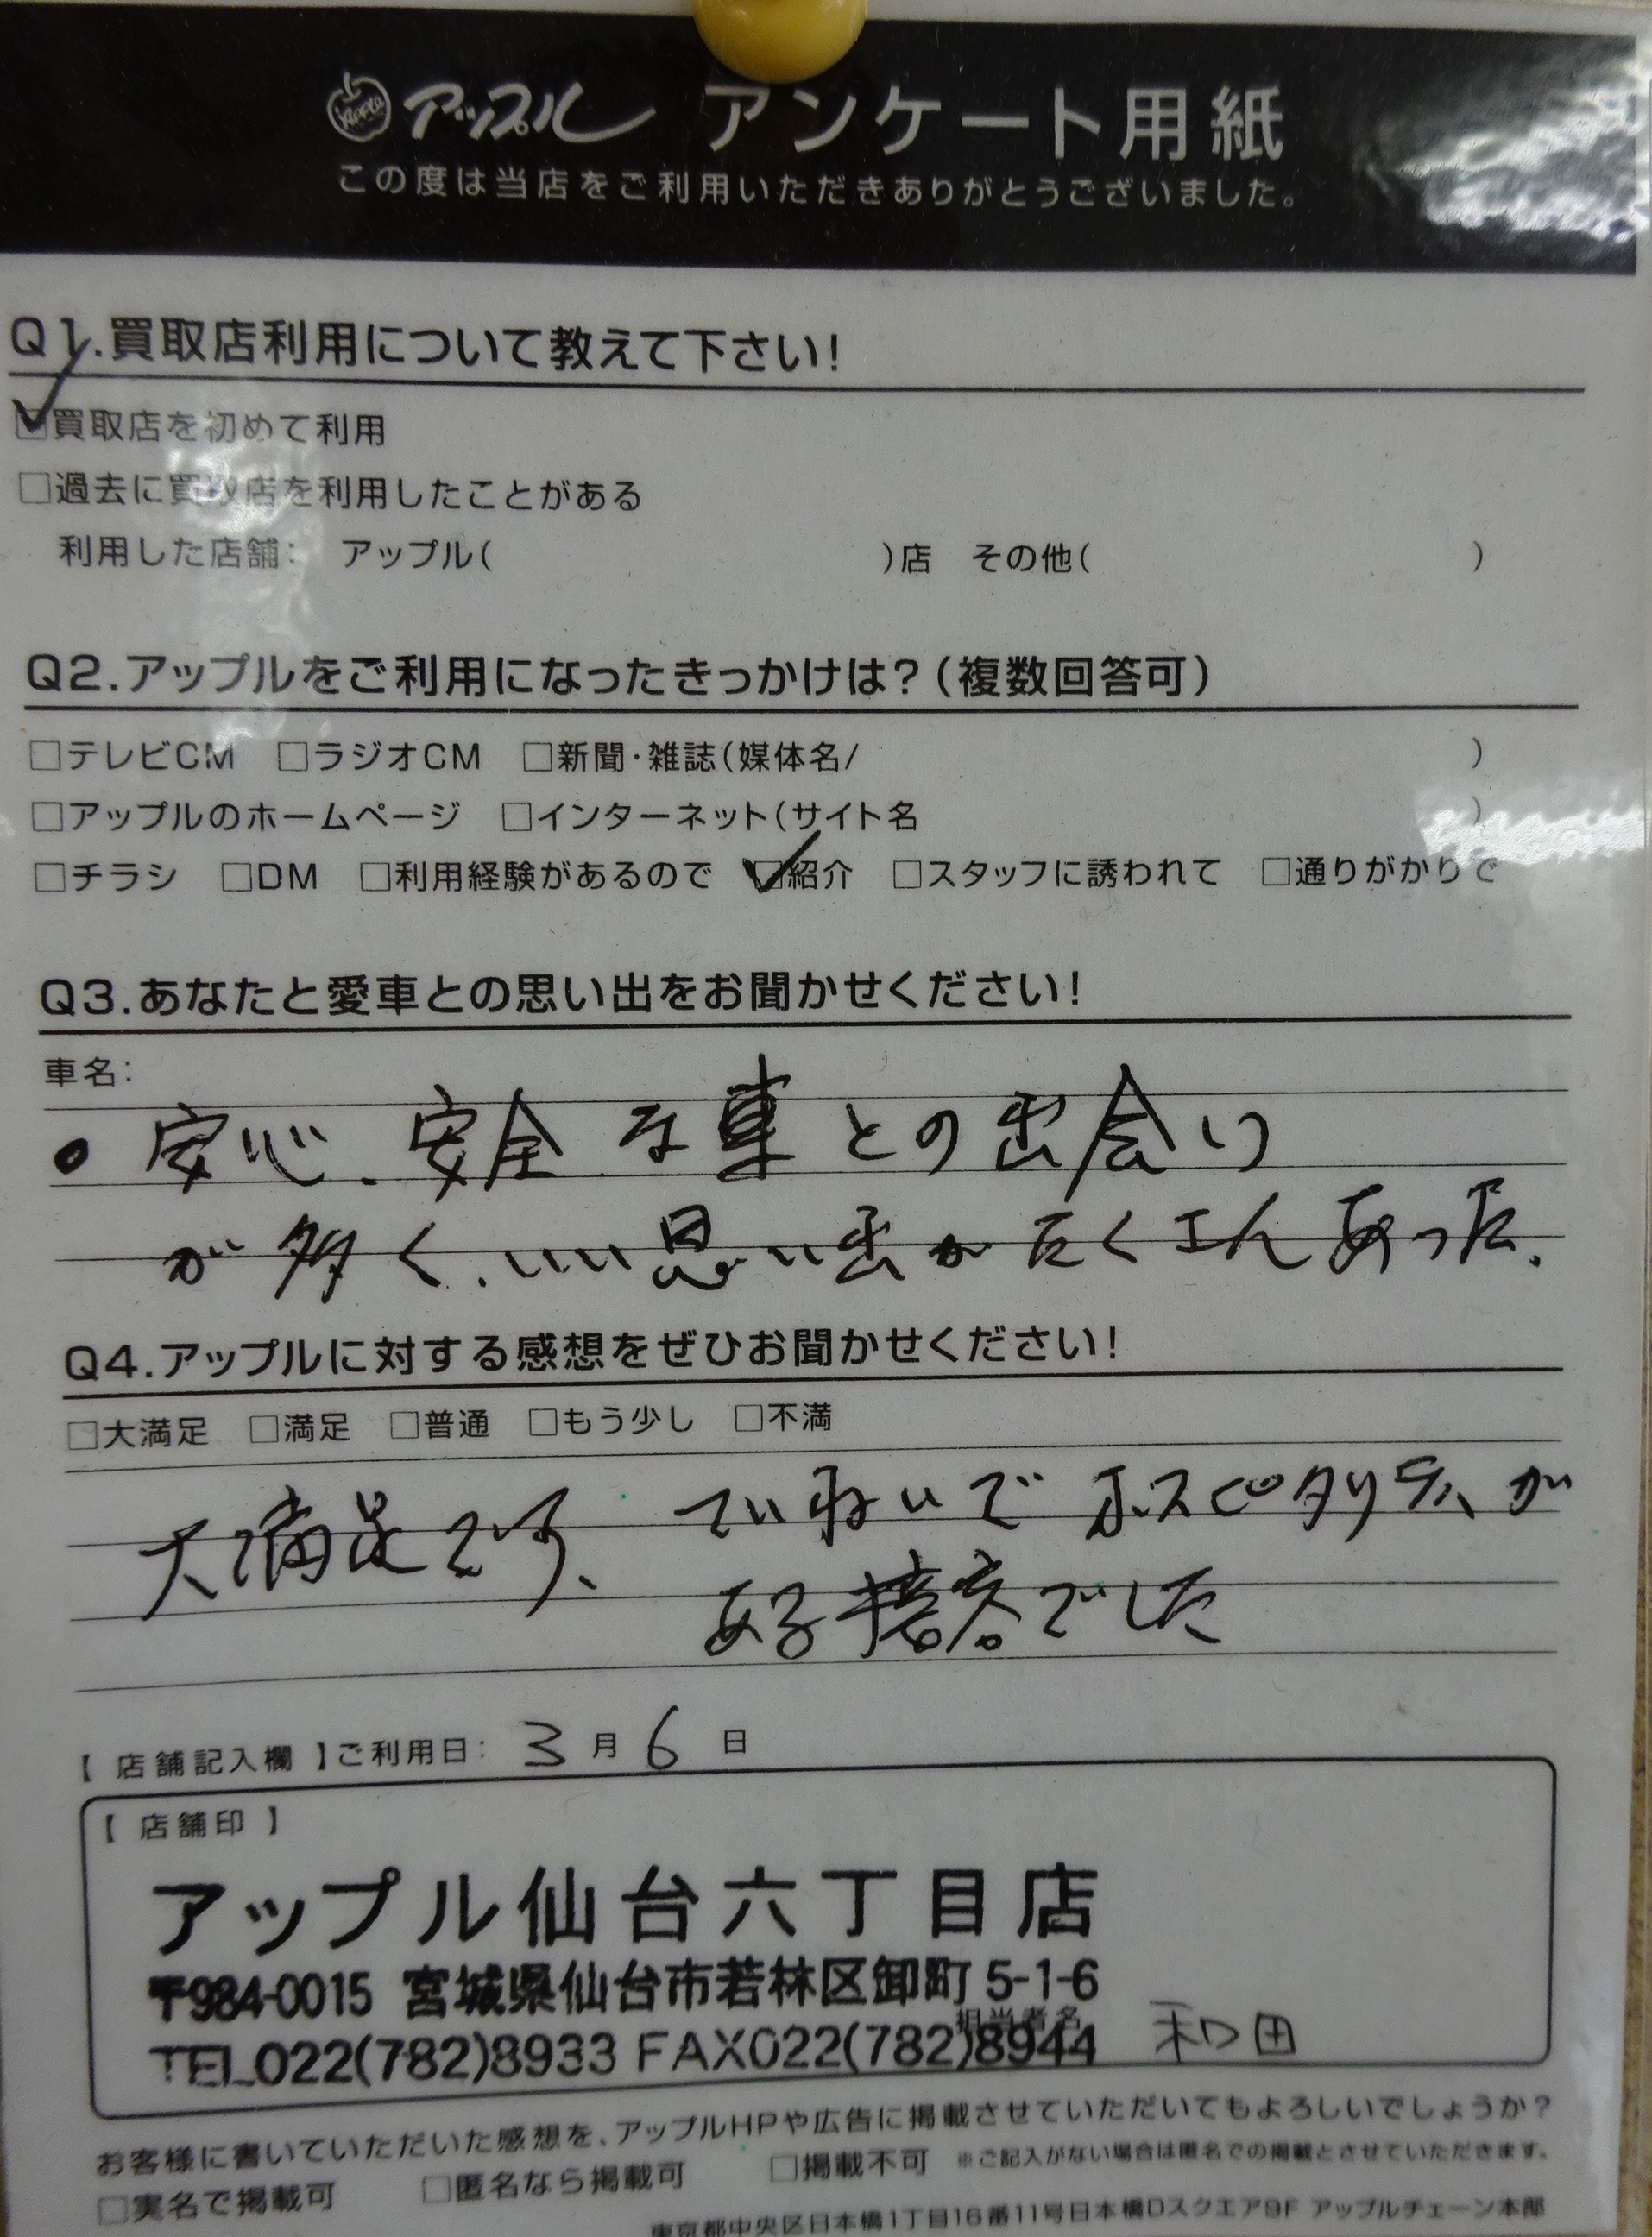 アップル アンケート用紙
この度は当店をご利用いただきありがとうございました。
Q1.買取店利用について教えて下さい!
☑買取店を初めて利用
□過去に買取店を利用したことがある
利用した店舗: アップル( )店 その他( )
Q2.アップルをご利用になったきっかけは?(複数回答可)
□テレビCM □ラジオCM □新聞・雑誌(媒体名/ )
□アップルのホームページ □インターネット(サイト名 )
□チラシ □DM □利用経験があるので ☑紹介 □スタッフに誘われて □通りがかりで
Q3.あなたと愛車との思い出をお聞かせください!
車名:
● 安心、安全な車との出会い
が多く、いい思い出がたくさんあった。
Q4.アップルに対する感想をぜひお聞かせください!
□大満足 □満足 □普通 □もう少し □不満
大満足です、ていねいでホスピタリティが
ある接客でした
【店舗記入欄】ご利用日: 3月6日
【店舗印】
アップル仙台六丁目店
〒984-0015 宮城県仙台市若林区卸町5-1-6
担当者名 和田
TEL022(782)8933 FAX022(782)8944
お客様に書いていただいた感想を、アップルHPや広告に掲載させていただいてもよろしいでしょうか?
□実名で掲載可 □匿名なら掲載可 □掲載不可 ※ご記入がない場合は匿名での掲載とさせていただきます。
東京都中央区日本橋1丁目16番11号日本橋Dスクエア9F アップルチェーン本部